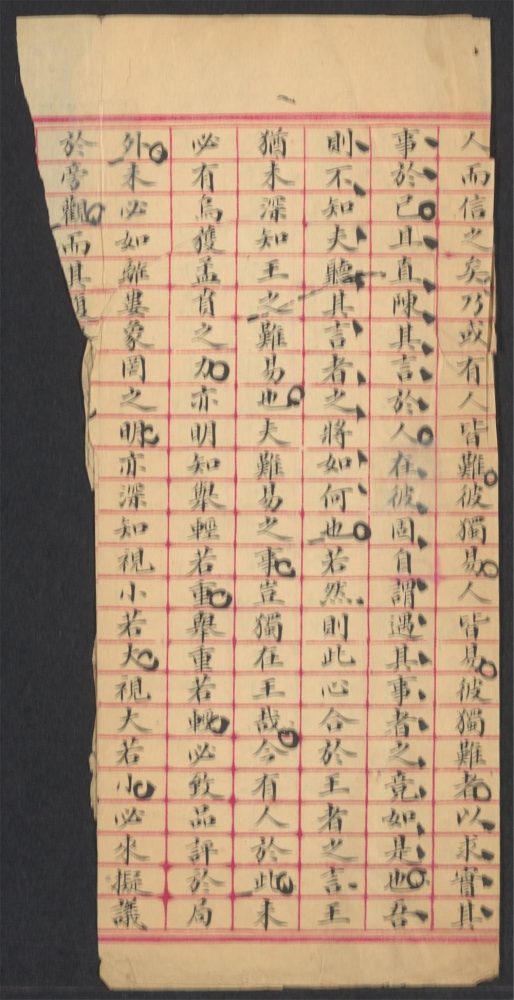 人而信之矣乃或有人皆難彼獨易人皆易彼獨難者以求實其
事於己且直陳其言於人在彼固自謂遇其事者之竟如是也吾
則不知夫聽其言者之將如何也若然則此心合於王者之言王
猶未深知王之難易也夫難易之事豈獨在王哉今有人於此未
必有烏獲孟賁之力亦明知舉輕若重舉重若輕必致品評於局
外未必如離婁象罔之明亦深知視小若大視大若小必來擬議
於旁觀而其